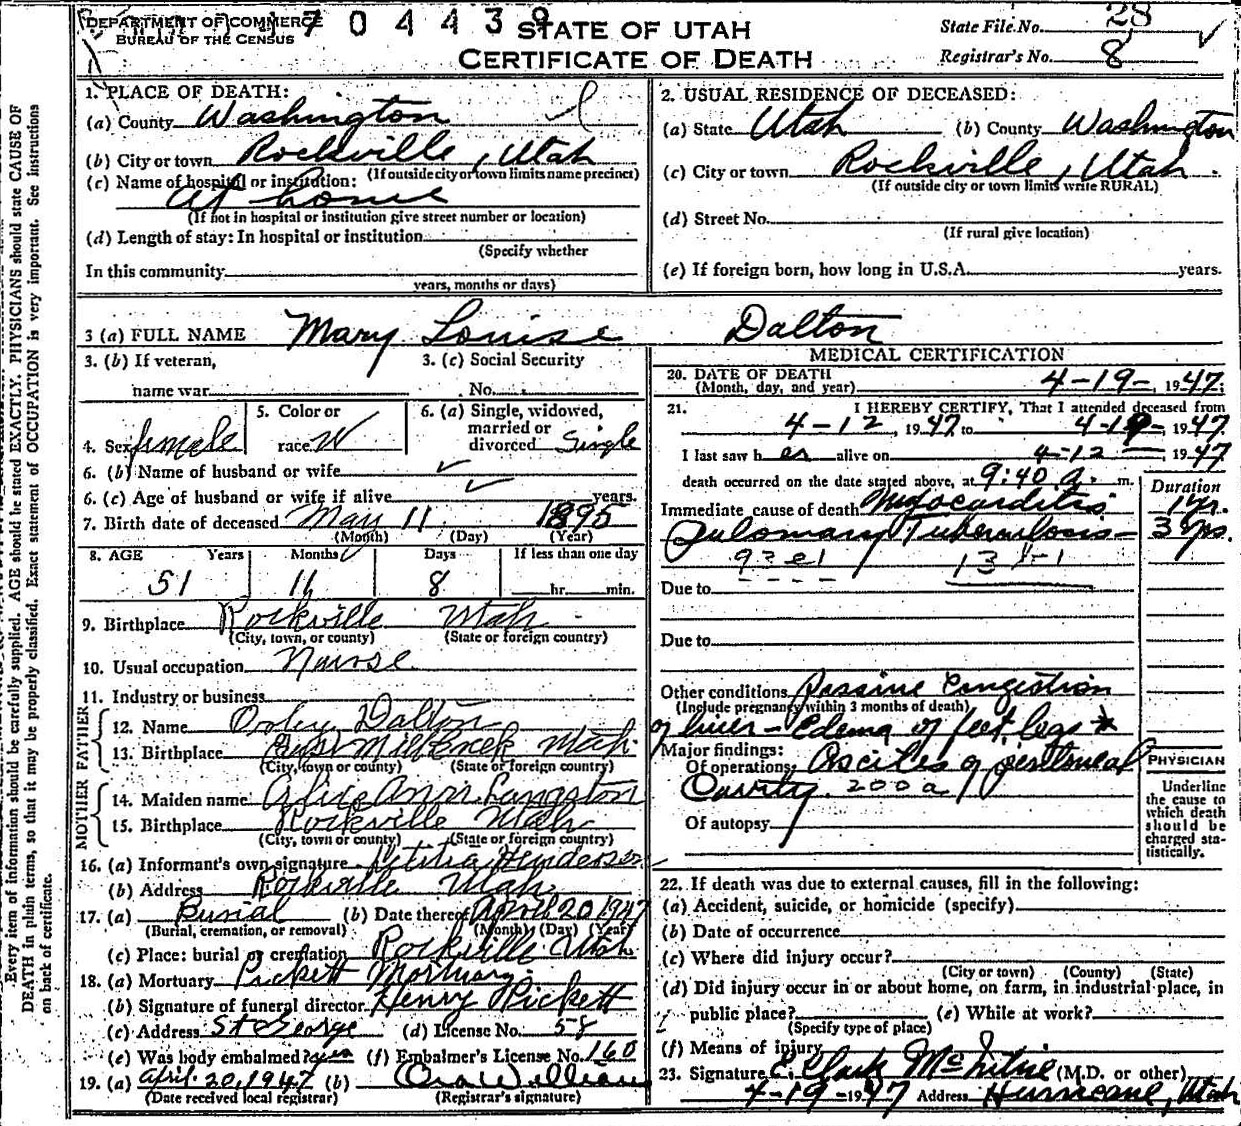 DEPARTMENT OF COMMERCE
BUREAU OF THE CENSUS
7 0 4 4 3 9
STATE OF UTAH
CERTIFICATE OF DEATH
State File No. 28
Registrar's No. 8
Every item of information should be carefully supplied. AGE should be stated EXACTLY. PHYSICIAN should state CAUSE OF
DEATH in plain terms, so that it may be properly classified. Exact statement of OCCUPATION is very important. See instructions
on back of certificate.
1. PLACE OF DEATH:
(a) County Washington
(b) City or town Rockville, Utah
(If outside city or town limits name precinct)
(c) Name of hospital or institution:
At home
(If not in hospital or institution give street number or location)
(d) Length of stay: In hospital or institution
(Specify whether
In this community
years, months or days)
2. USUAL RESIDENCE OF DECEASED:
(a) State Utah (b) County Washington
(c) City or town Rockville, Utah.
(If outside city or town limits write RURAL)
(d) Street No.
(If rural give location)
(e) If foreign born, how long in U.S.A. years.
3 (a) FULL NAME Mary Louise Dalton
3. (b) If veteran, 3. (c) Social Security
name war No.
4. Sex female 5. Color or race W 6. (a) Single, widowed, married or divorced Single
6. (b) Name of husband or wife ✓
6. (c) Age of husband or wife if alive ✓ years.
7. Birth date of deceased May 11 1895
(Month) (Day) (Year)
8. AGE Years Months Days If less than one day
51 11 8 hr. min.
9. Birthplace Rockville Utah
(City, town, or county) (State or foreign country)
10. Usual occupation Nurse
11. Industry or business
FATHER
12. Name Orley Dalton
13. Birthplace Mill Creek Utah
(City, town or county) (State or foreign country)
MOTHER
14. Maiden name Alice Ann Langston
15. Birthplace Rockville Utah
(City, town or county) (State or foreign country)
16. (a) Informant's own signature Letitia Henderson
(b) Address Rockville Utah
17. (a) Burial (b) Date thereof April 20 1947
(Burial, cremation, or removal) (Month) (Day) (Year)
(c) Place: burial or cremation Rockville Utah
18. (a) Mortuary Pickett Mortuary
(b) Signature of funeral director Henry Pickett
(c) Address St George (d) License No. 58
(e) Was body embalmed? yes (f) Embalmer's License No. 160
19. (a) April 20, 1947 (b) Ora Williams
(Date received local registrar) (Registrar's signature)
MEDICAL CERTIFICATION
20. DATE OF DEATH
(Month, day, and year) 4-19-, 1947;
21. I HEREBY CERTIFY, That I attended deceased from
4-12, 1947 to 4-19-, 1947
I last saw her alive on 4-12 1947
death occurred on the date stated above, at 9:40 a. m.
Duration
Immediate cause of death Myocarditis 1 yr.
Pulomary Tuberculosis- 3 yrs.
93e1 13
Due to
Due to
Other conditions Passive Congestion
(Include pregnancy within 3 months of death)
of liver - Edema of feet, legs *
Major findings:
Of operations Ascites of peritoneal
Cavity. 200a
Of autopsy
PHYSICIAN
Underline
the cause to
which death
should be
charged sta-
tistically.
22. If death was due to external causes, fill in the following:
(a) Accident, suicide, or homicide (specify)
(b) Date of occurrence
(c) Where did injury occur?
(City or town) (County) (State)
(d) Did injury occur in or about home, on farm, in industrial place, in
public place? (e) While at work?
(Specify type of place)
(f) Means of injury
23. Signature Clark McIntire (M.D. or other)
4-19-1947 Address Hurricane, Utah